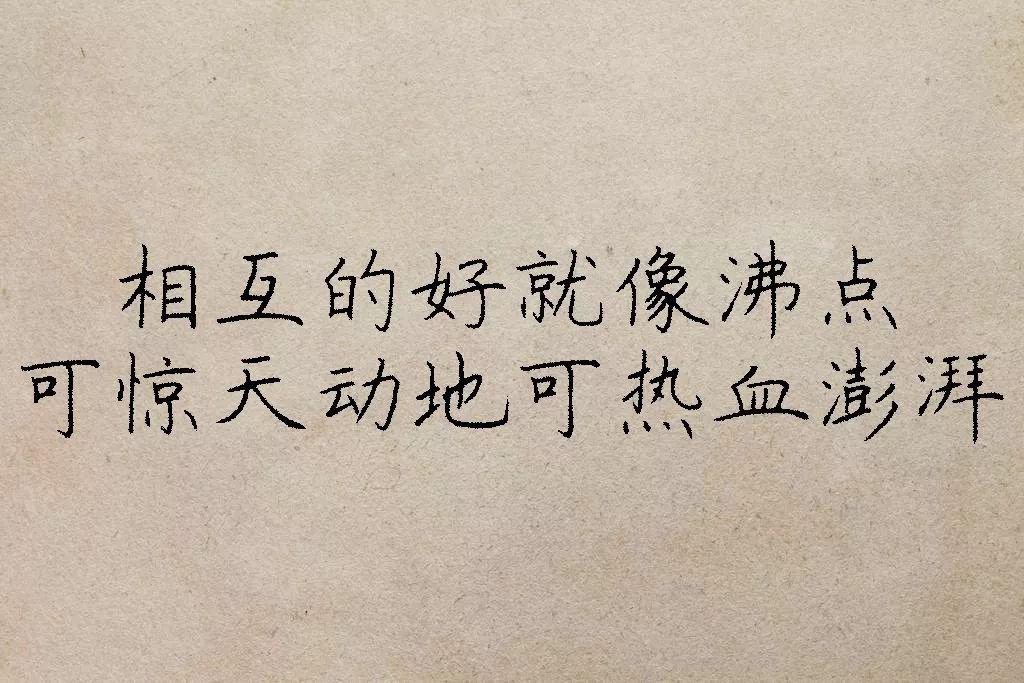 相互的好就像沸点
可惊天动地可热血澎湃